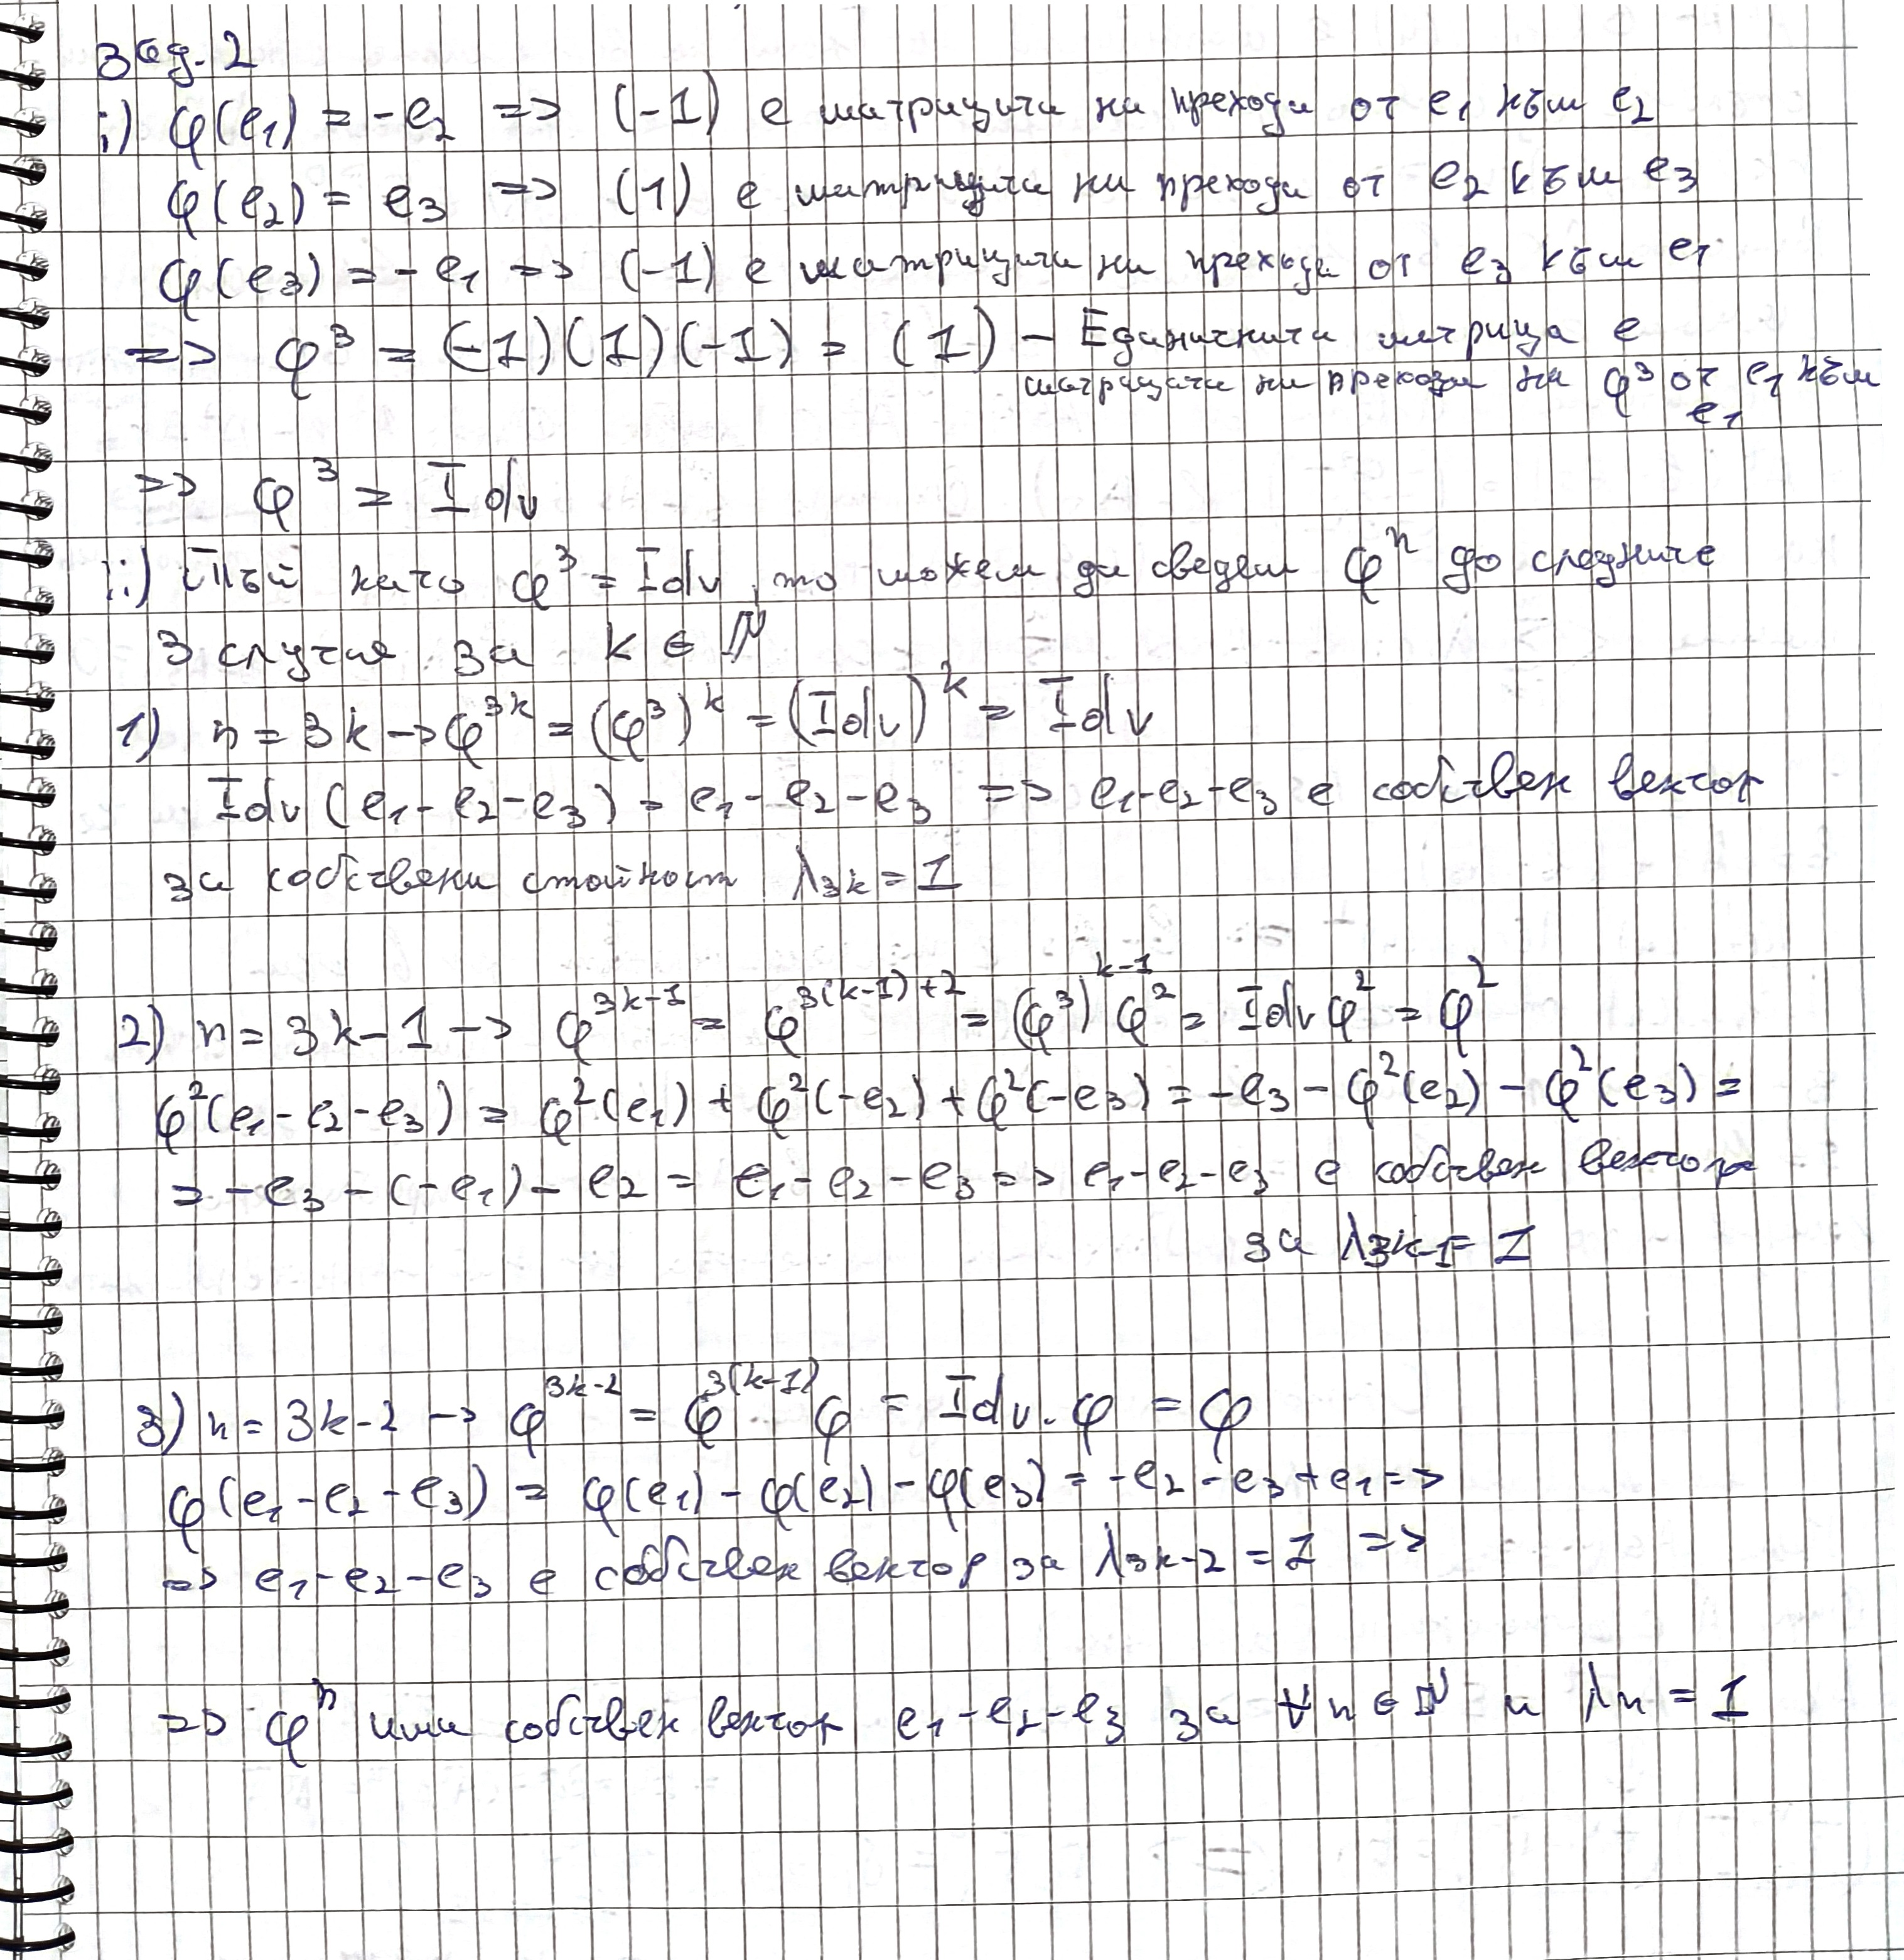 Зад. 2
i) φ(e₁) = -e₂ => (-1) е матрицата на прехода от e₁ към e₂
φ(e₂) = e₃ => (1) е матрицата на прехода от e₂ към e₃
φ(e₃) = -e₁ => (-1) е матрицата на прехода от e₃ към e₁
=> φ³ = (-1)(1)(-1) = (1) - Единичната матрица е
матрицата на прехода на φ³ от e₁ към
e₁
=> φ³ = Idv
ii) Тъй като φ³ = Idv, то можем да сведем φⁿ до следните
3 случая за k ∈ ℕ
1) n = 3k -> φ³ᵏ = (φ³)ᵏ = (Idv)ᵏ = Idv
Idv(e₁ - e₂ - e₃) = e₁ - e₂ - e₃ => e₁ - e₂ - e₃ е собствен вектор
за собствени стойност λ₃ₖ = 1
2) n = 3k - 1 -> φ³ᵏ⁻¹ = φ³⁽ᵏ⁻¹⁾⁺² = (φ³)ᵏ⁻¹ φ² = Idv φ² = φ²
φ²(e₁ - e₂ - e₃) = φ²(e₁) + φ²(-e₂) + φ²(-e₃) = -e₃ - φ²(e₂) - φ²(e₃) =
= -e₃ - (-e₁) - e₂ = e₁ - e₂ - e₃ => e₁ - e₂ - e₃ е собствен вектор
за λ₃ₖ₋₁ = 1
3) n = 3k - 2 -> φ³ᵏ⁻² = φ³⁽ᵏ⁻¹⁾ φ = Idv . φ = φ
φ(e₁ - e₂ - e₃) = φ(e₁) - φ(e₂) - φ(e₃) = -e₂ - e₃ + e₁ =>
=> e₁ - e₂ - e₃ е собствен вектор за λ₃ₖ₋₂ = 1 =>
=> φⁿ има собствен вектор e₁ - e₂ - e₃ за ∀n ∈ ℕ и λₙ = 1